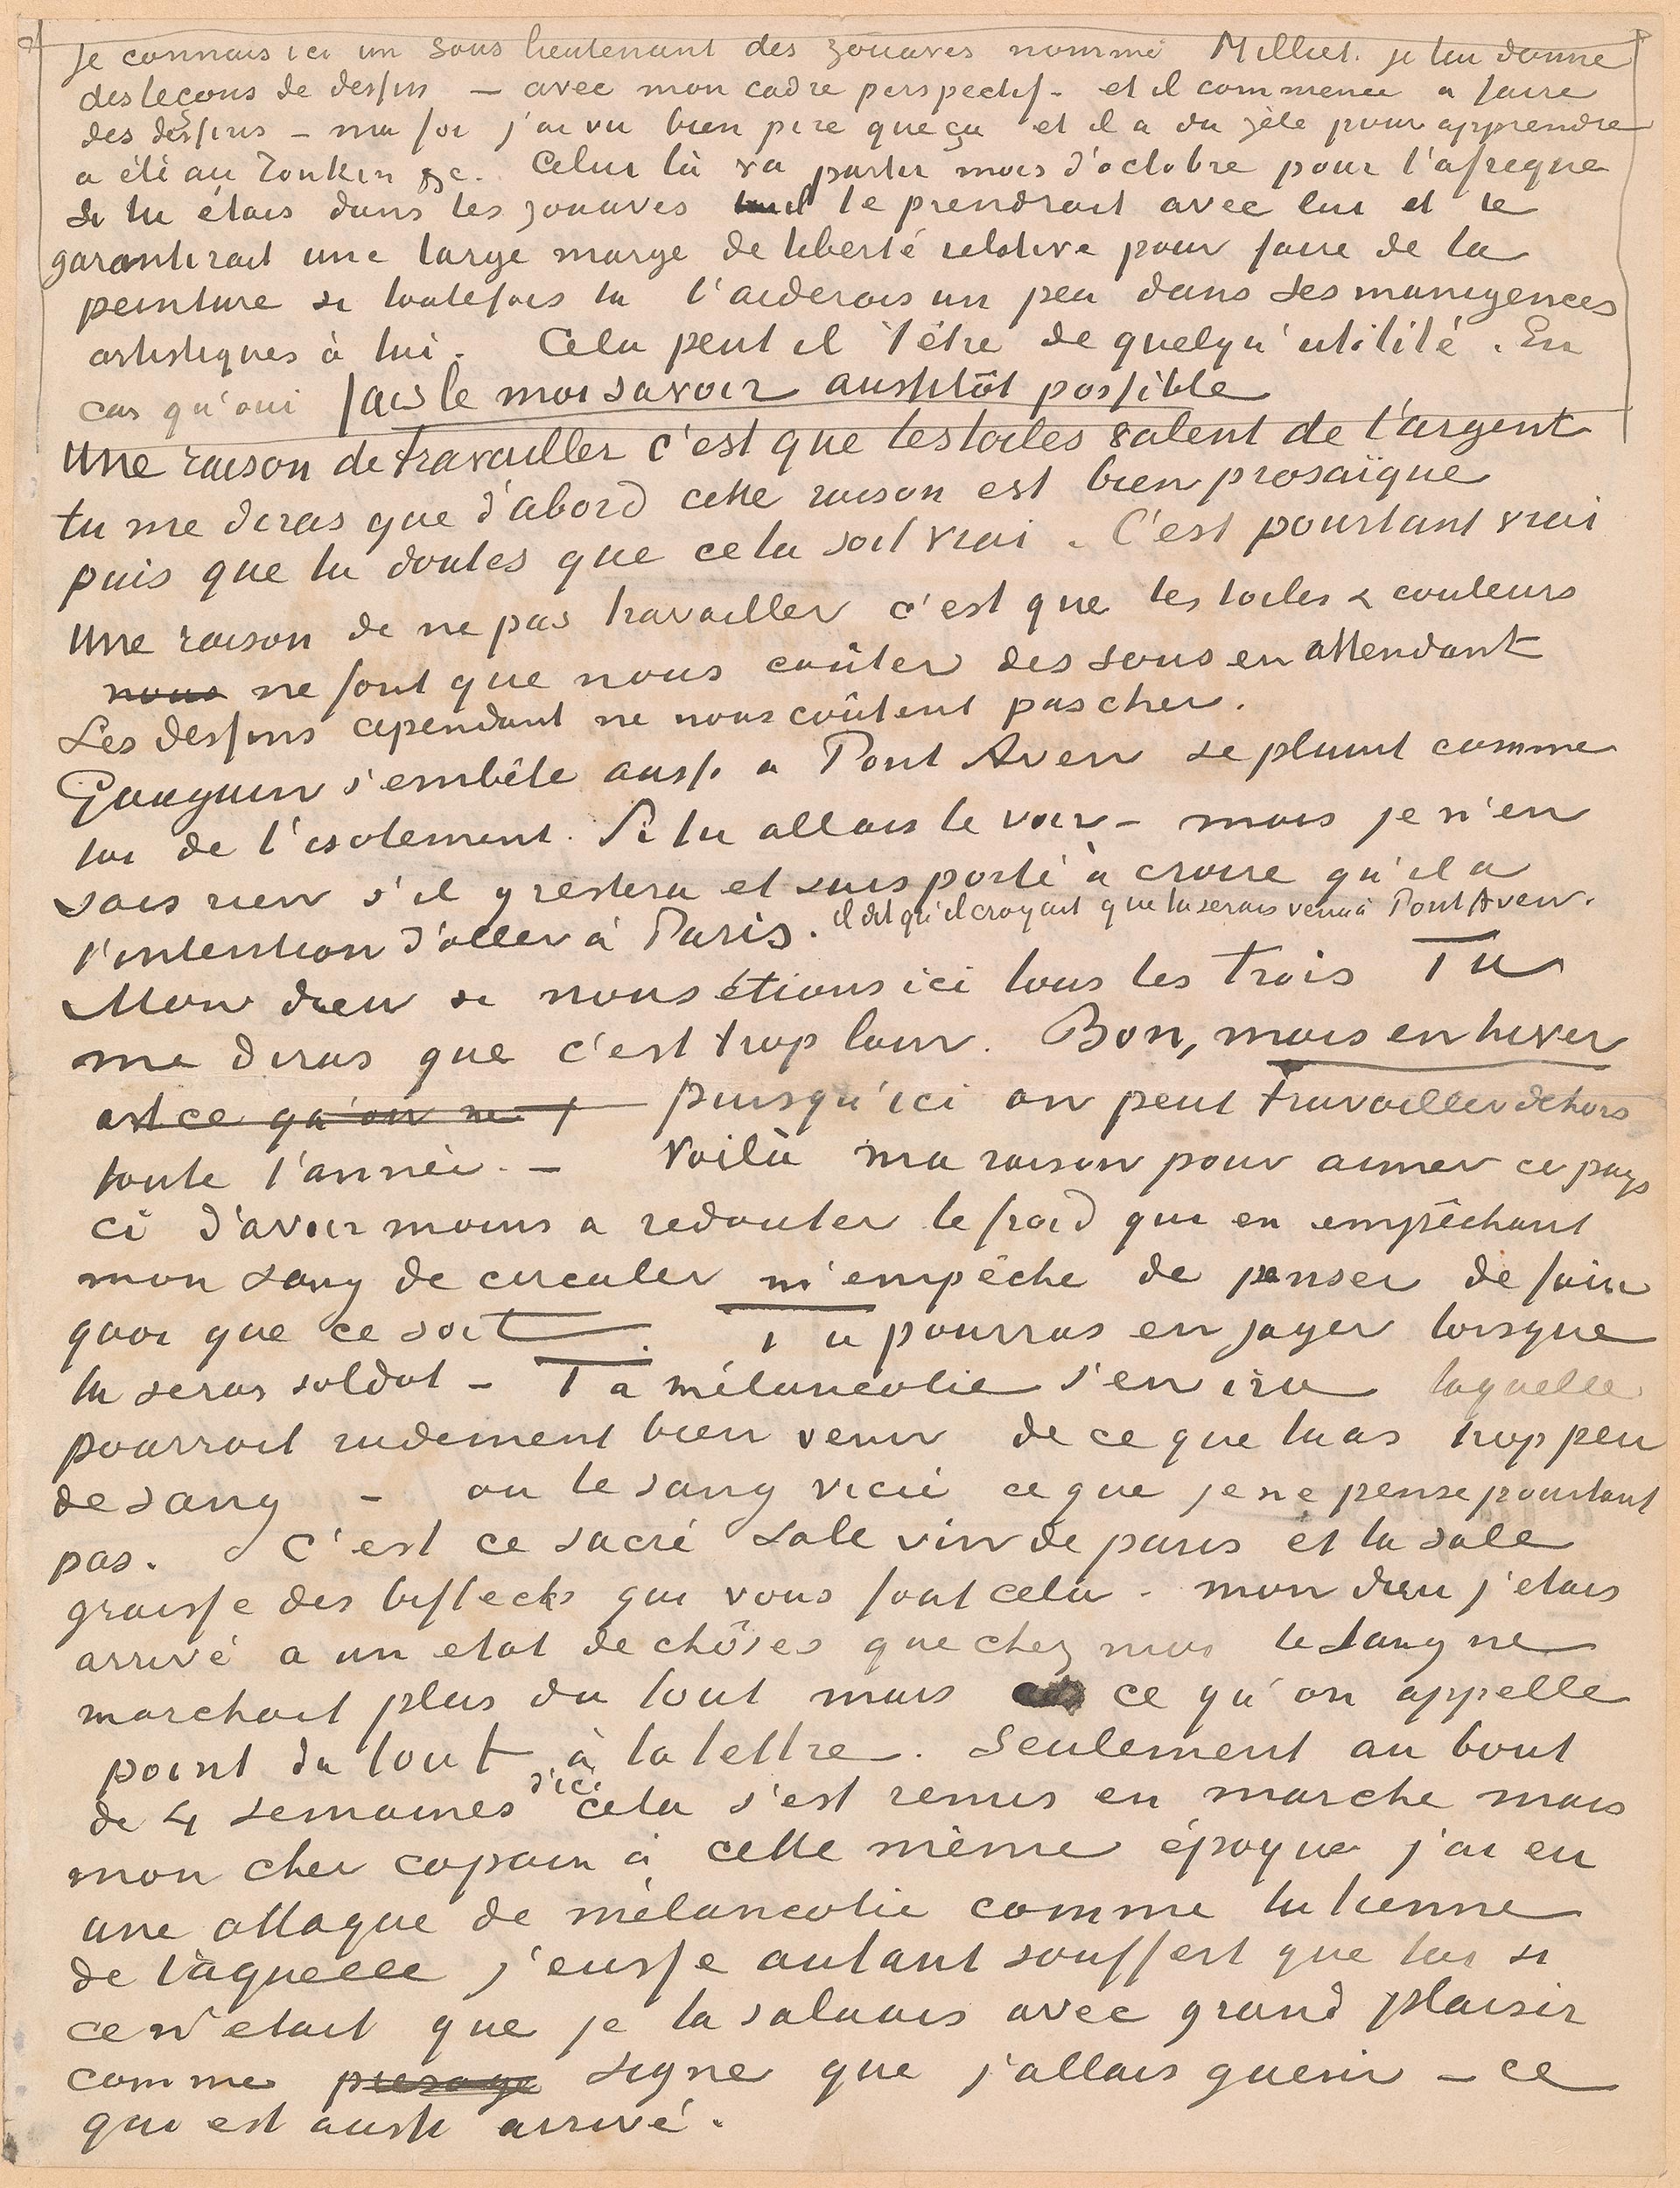 Je connais ici un sous lieutenant des zouaves nommé Milliet. je lui donne
des leçons de dessin – avec mon cadre perspectif – et il commence a faire
des dessins – ma foi j'ai vu bien pire que ça et il a du zèle pour apprendre
a été au Tonkin &c. Celui là va partir mois d'octobre pour l'afrique
Si tu étais dans les zouaves il te prendrait avec lui et te
garantirait une large marge de liberté relative pour faire de la
peinture si toutefois tu l'aiderais un peu dans ses manigences
artistiques à lui. Cela peut il t'être de quelqu'utilité. En
cas qu'oui fais le moi savoir aussitôt possible
Une raison de travailler c'est que les toiles valent de l'argent
tu me diras que d'abord cette raison est bien prosaïque
puis que tu doutes que cela soit vrai. C'est pourtant vrai
Une raison de ne pas travailler c'est que les toiles & couleurs
nous ne font que nous coûter des sous en attendant
Les dessins cependant ne nous coûtent pas cher.
Gauguin s'embête aussi a Pont Aven se plaint comme
toi de l'isolement. Si tu allais le voir – mais je n'en
sais rien s'il y restera et suis porté à croire qu'il a
l'intention d'aller à Paris. il dit qu'il croyait que tu serais venu à Pont Aven.
Mon dieu si nous étions ici tous les trois Tu
me diras que c'est trop loin. Bon, mais en hiver
est ce qu'on ne p puisqu'ici on peut travailler dehors
toute l'année. – Voilà ma raison pour aimer ce pays
ci d'avoir moins a redouter le froid qui en empêchant
mon sang de circuler m'empêche de penser de faire
quoi que ce soit. Tu pourras en juger lorsque
tu seras soldat – Ta mélancolie s'en ira laquelle
pourrait rudement bien venir de ce que tu as trop peu
de sang – ou le sang vicié ce que je ne pense pourtant
pas. C'est ce sacré sale vin de paris et la sale
graisse des biftecks qui vous font cela – mon dieu j'etais
arrivé a un etat de chôses que chez moi le sang ne
marchait plus du tout mais ce qu'on appelle
point du tout à la lettre. Seulement au bout
de 4 semaines d'ici cela s'est remis en marche mais
mon cher copain à cette même époque j'ai eu
une attaque de mélancolie comme la tienne
de laquelle j'eusse autant souffert que toi si
ce n'etait que je la saluais avec grand plaisir
comme presage signe que j'allais guerir – ce
qui est aussi arrivé.